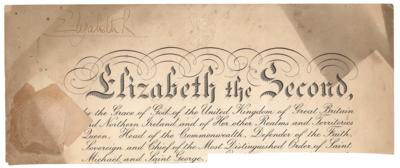 Elizabeth R
Elizabeth the Second,
by the Grace of God, of the United Kingdom of Great Britain
and Northern Ireland and of Her other Realms and Territories
Queen, Head of the Commonwealth, Defender of the Faith,
Sovereign and Chief of the Most Distinguished Order of Saint
Michael and Saint George,